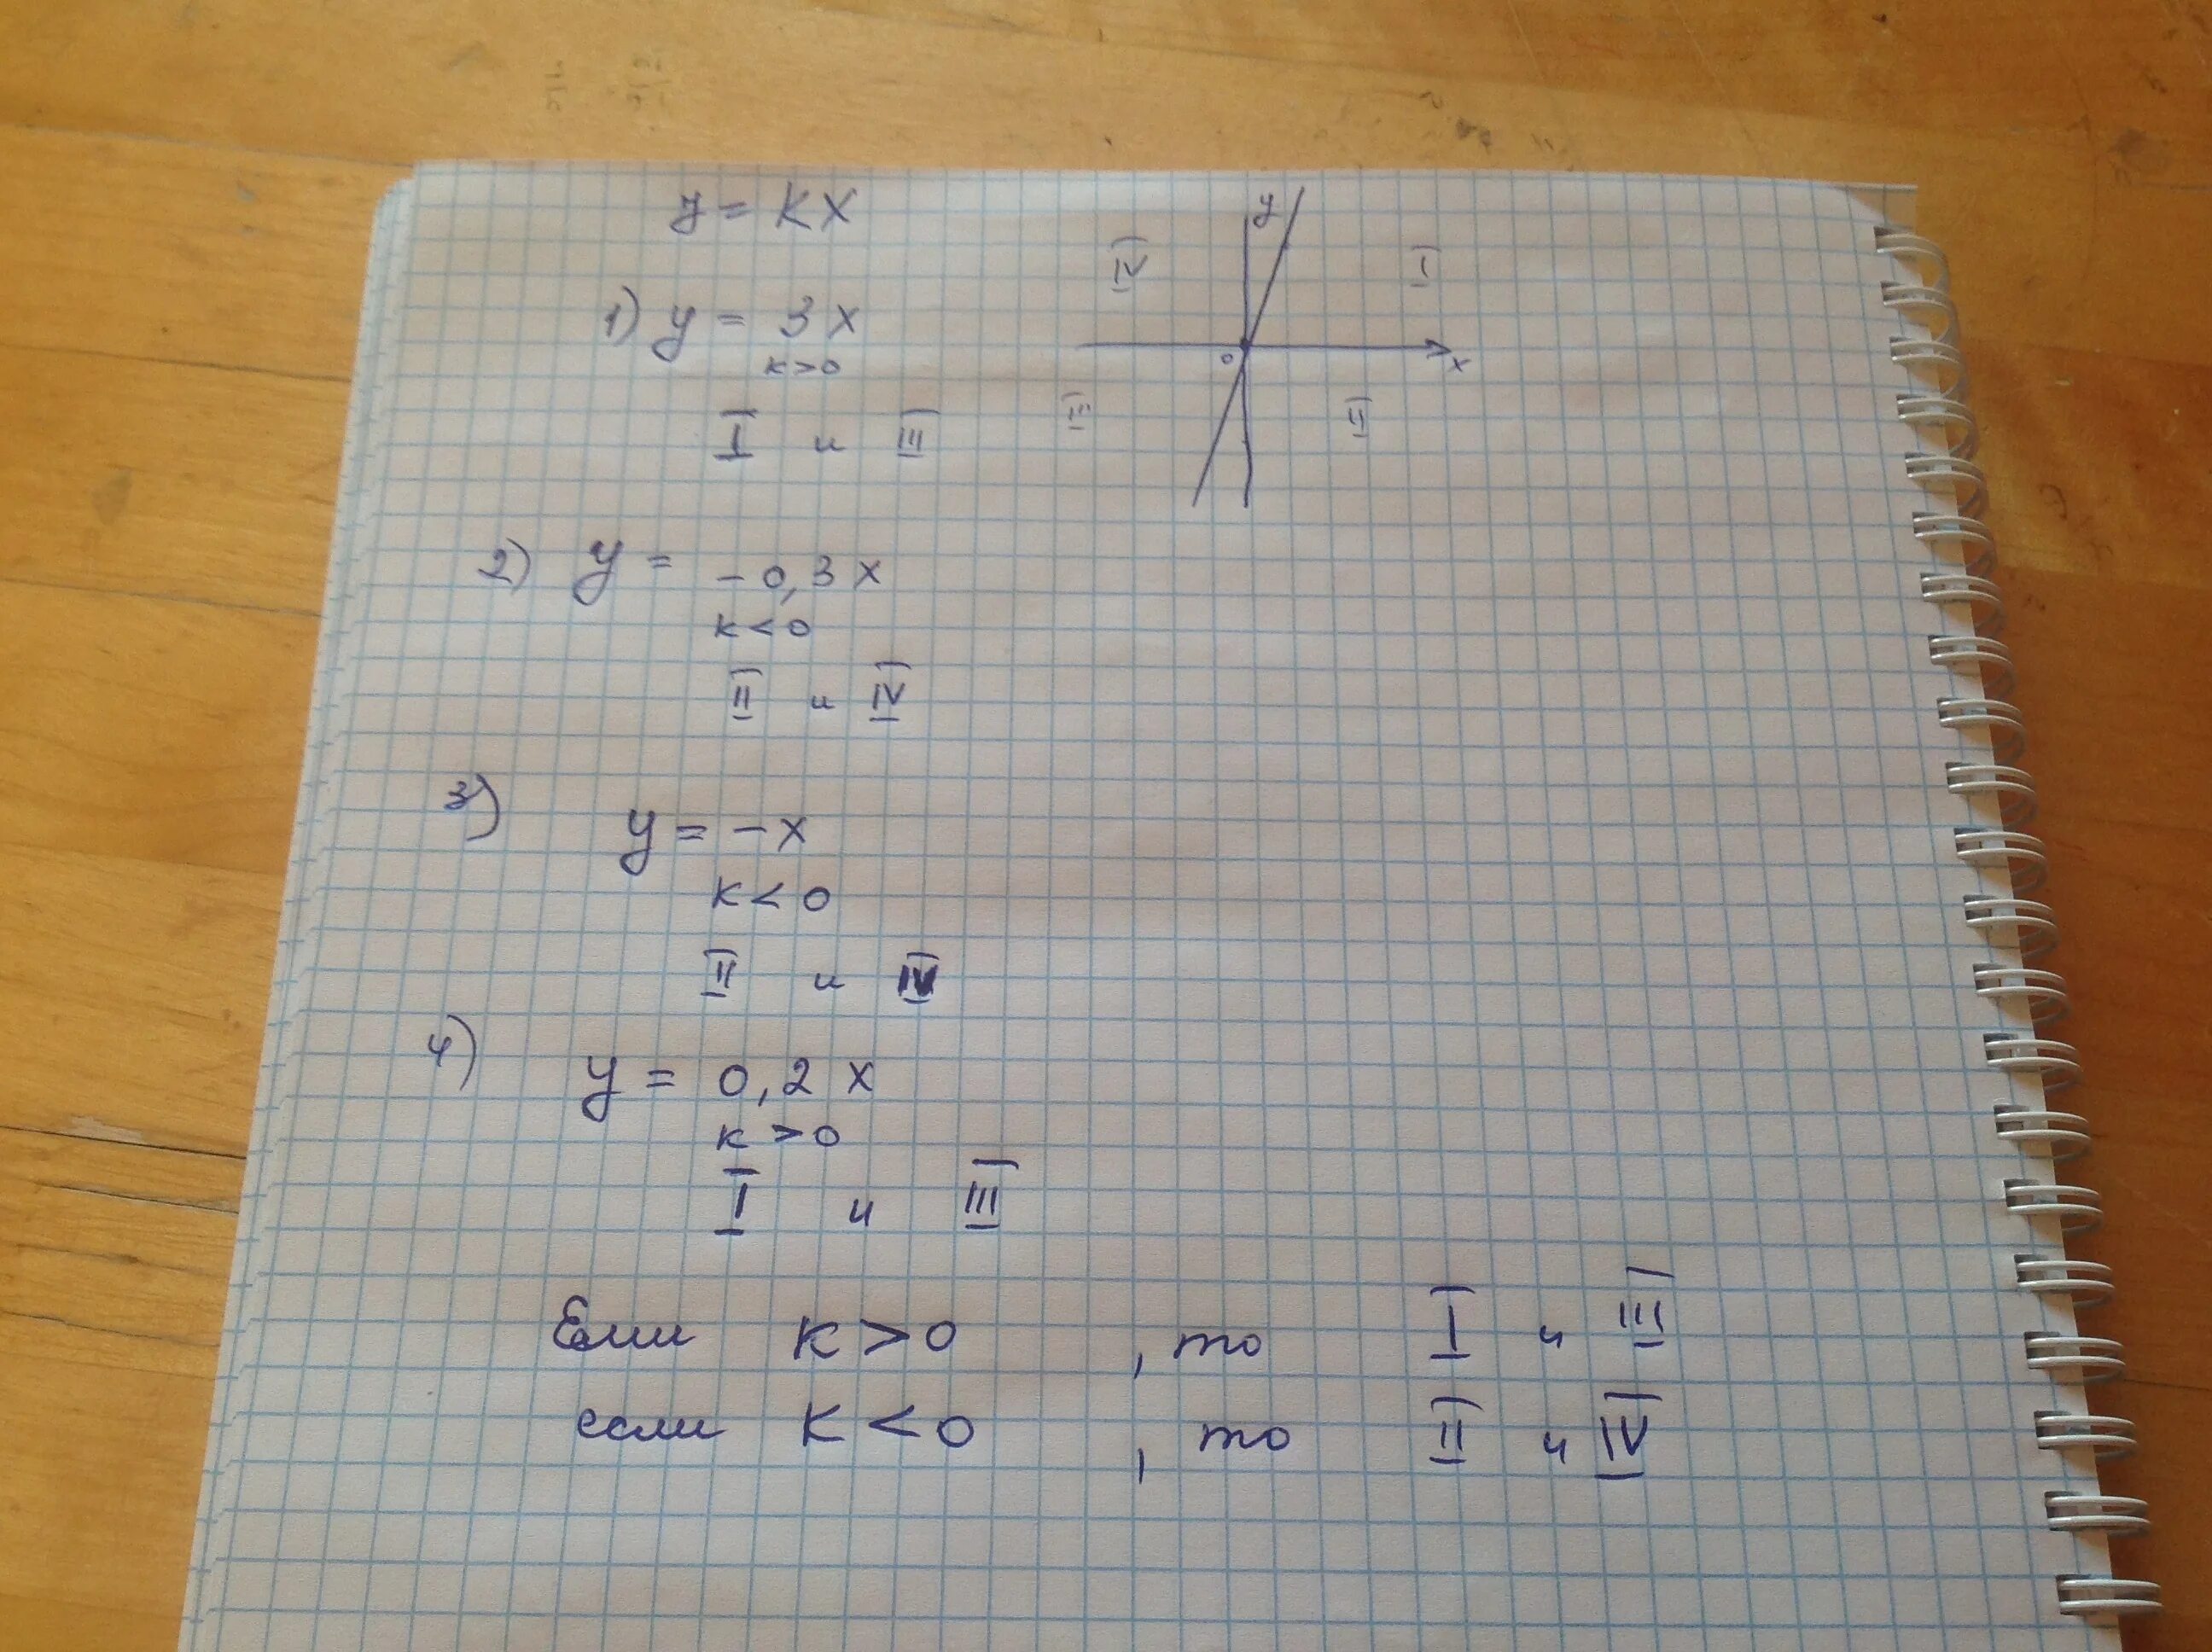 y = kx
1) y = 3x
k>0
I и III
y
IV
I
0
x
III
II
2) y = -0,3x
k<0
II и IV
3) y = -x
k<0
II и IV
4) y = 0,2x
k>0
I и III
Если k>0, то I и III
если k<0, то II и IV